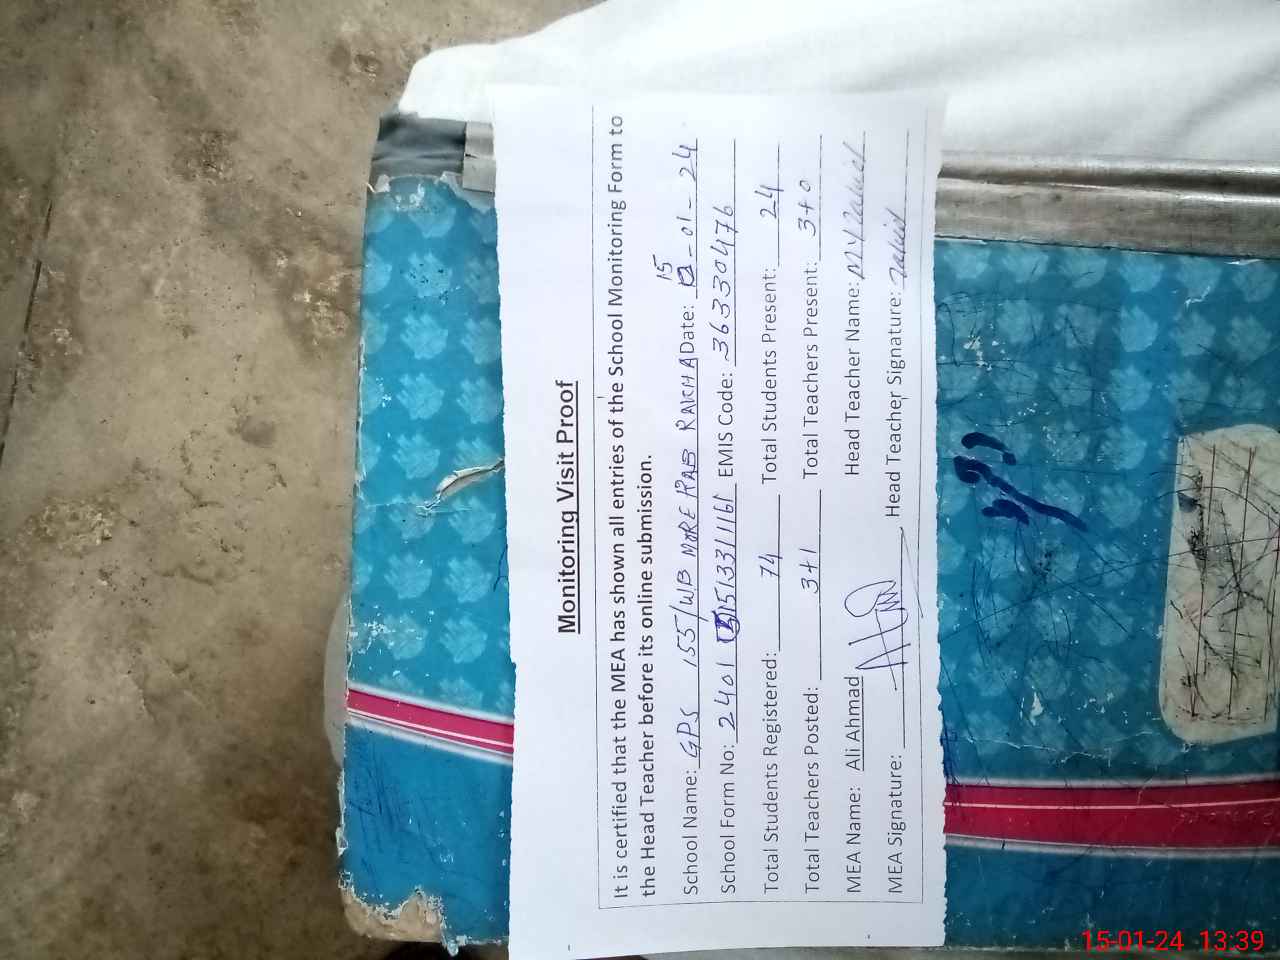 Monitoring Visit Proof
It is certified that the MEA has shown all entries of the School Monitoring Form to
the Head Teacher before its online submission.
School Name: GPS 155/WB MORE RAB RAKHA Date: 15-01-24
School Form No: 2401 1513311161 EMIS Code: 36330476
Total Students Registered: 74 Total Students Present: 24
Total Teachers Posted: 3+1 Total Teachers Present: 3+0
MEA Name: Ali Ahmad Head Teacher Name:
MEA Signature: Head Teacher Signature:
15-01-24 13:39